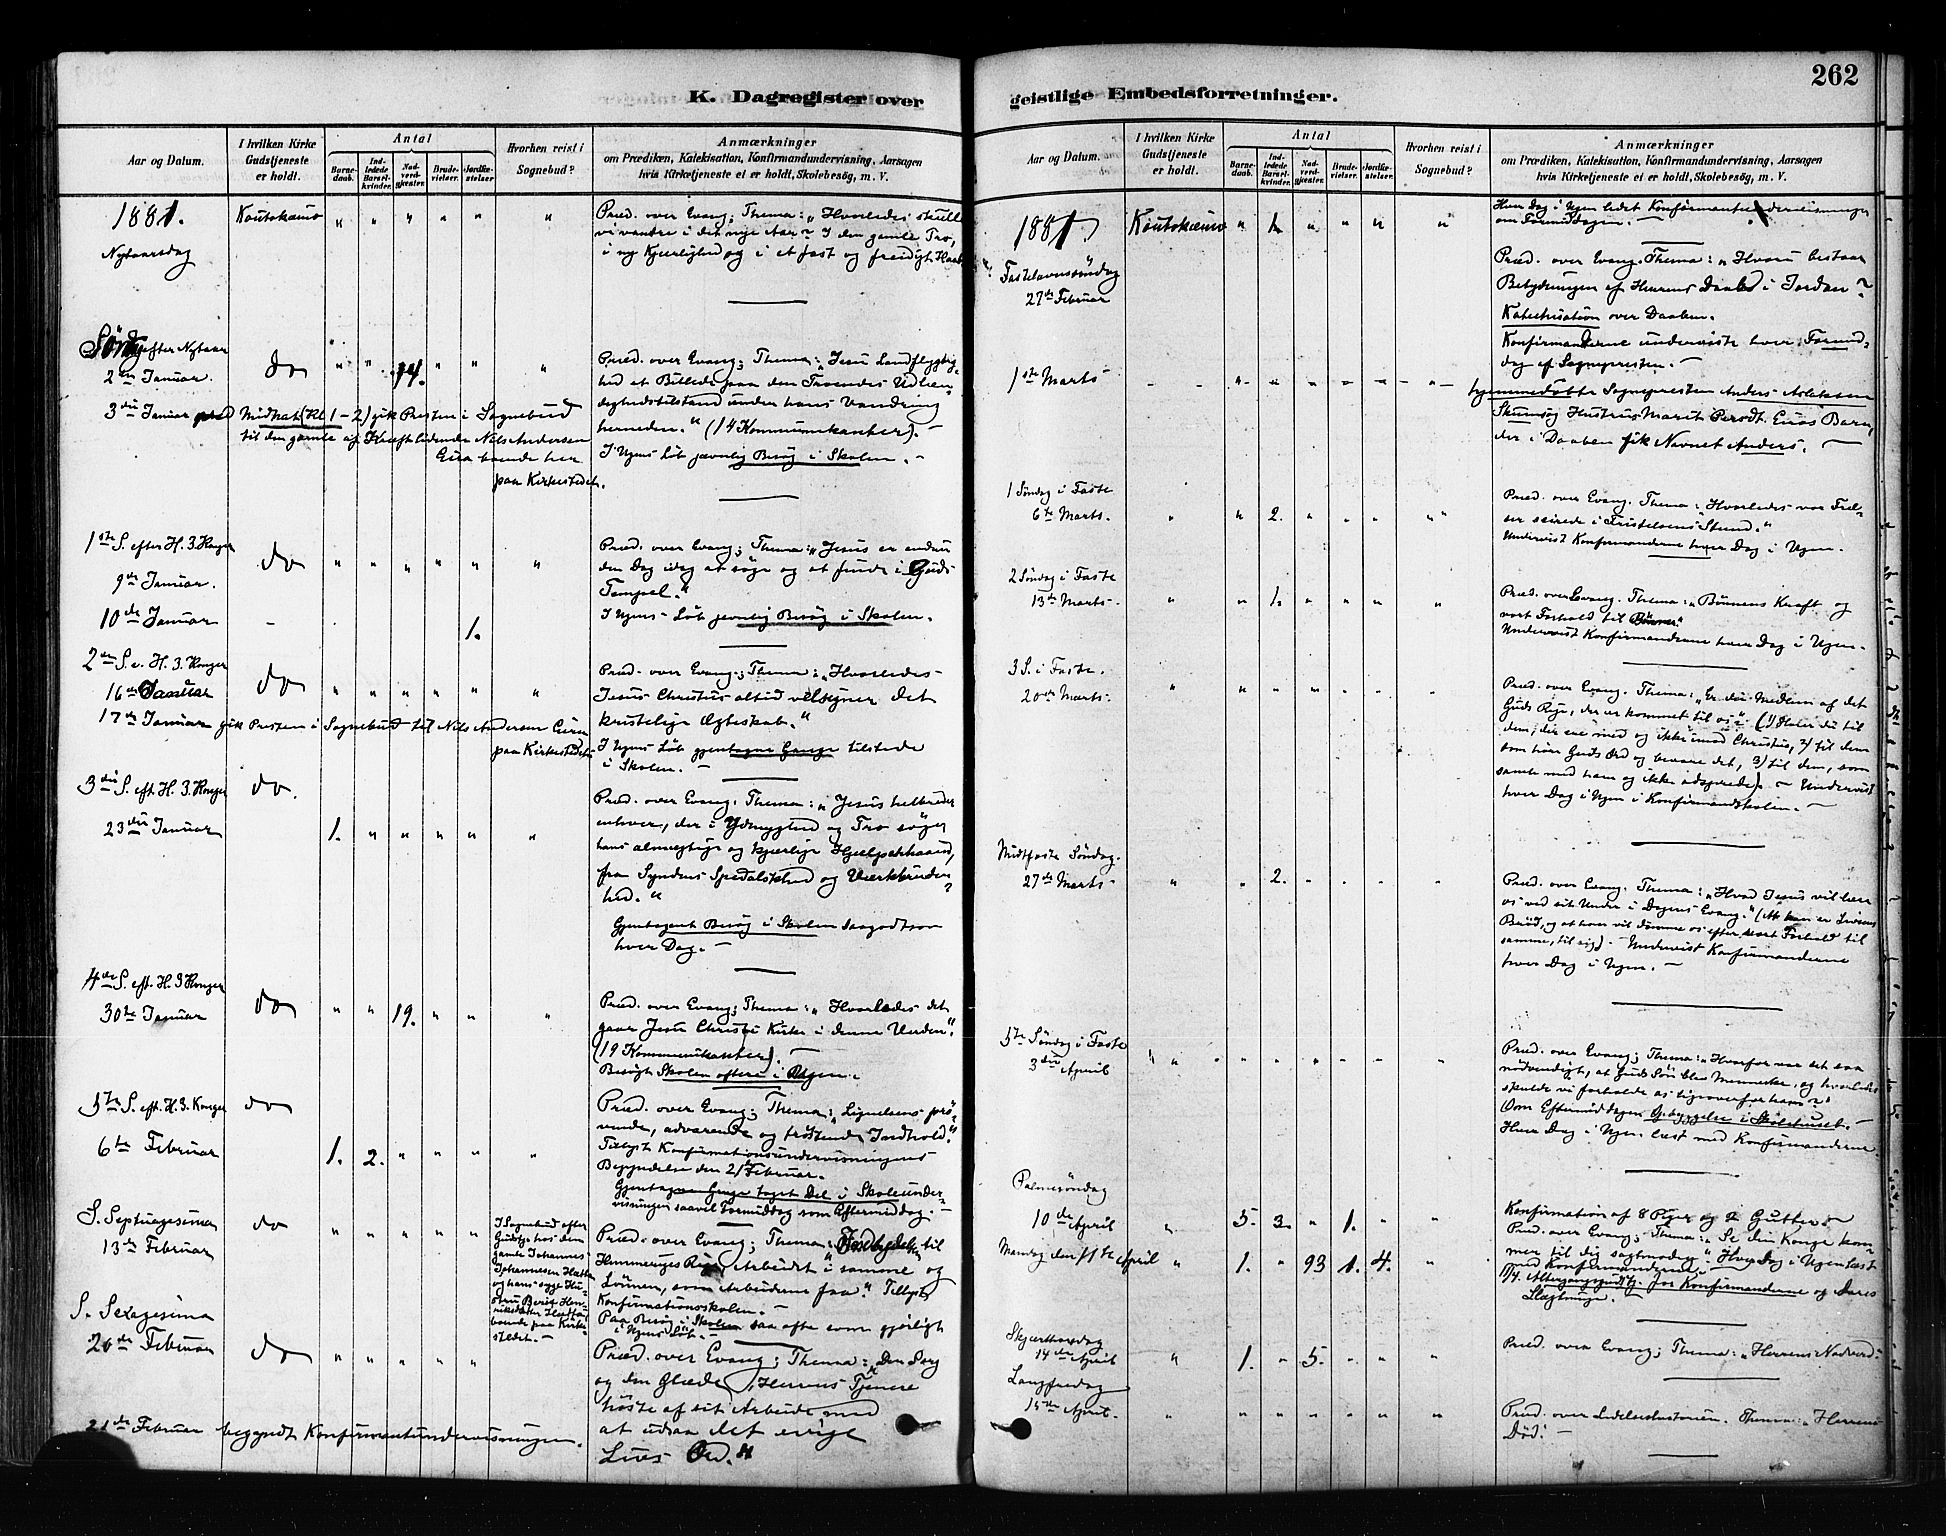 262
K. Dagregister over
Aar og Datum.
I hvilken Kirke Gudstjeneste er holdt.
Antal
Barnedaab.
Indledede Barselkvinder.
Nadverdgjester.
Brudevielser.
Jordfæstelser.
Hvorhen reist i Sognebud?
Anmærkninger
om Prædiken, Katekisation, Konfirmandundervisning, Aarsagen
hvis Kirketjeneste ei er holdt, Skolebesøg, m. V.
1881. Koutokæino " " " " " "
Nytaarsdag
Præd. over Evang; Thema: "Hvorledes skulle
vi vandre i det nye Aar? I den gamle Tro,
i ny Kjærlighed og i et fast og freidigt Haab
Sønd. efter Nytaar
2den Januar. do " " 14. " " "
Præd. over Evang; Thema: "Jesu Landflygtig-
hed et Billede paa den Troendes Udlæn-
dighedstilstand under hans Vandring
herneden." (14 Kommunikanter). -
I Ugens Løb jævnlig Besøg i Skolen. -
3die Januar Midnat (Kl. 1-2) gik Presten i Sognebud
til den gamle af Kræft lidende Nils Andersen
boende her
paa Kirkestedet.
1ste S. efter H. 3. Konger
9de Januar. do " " " " " "
Præd. over Evang; Thema: "Jesus er endnu
den Dag idag at søge og at finde i Guds
Tempel."
I Ugens Løb jevnlig Besøg i Skolen.
10de Januar - 1.
2den S. e. H. 3. Konger
16de Januar do " " " " " "
Præd. over Evang; Thema: "Hvorledes
Jesus Christus altid velsigner det
kristelige Ægteskab."
I Ugens Løb gjentagne Gange tilstede
i Skolen. -
17de Januar gik Presten i Sognebud til Nils Andersen
paa Kirkestedet
3die S. eft. H. 3. Konger do.
23die Januar 1. " " " " "
Præd. over Evang. Thema: "Jesus helbreder
enhver, der i Ydmyghed og Tro søger
hans almægtige og kjærlige Hjælperhaand,
fra Syndens Spedalskhed og Værkbruden-
hed."
Gjentagent Besøg i Skolen saagodtsom
hver Dag. -
4de S. eft. H. 3 Konger
30te Januar do " " 19. " " "
Præd. over Evang; Thema: "Hvorledes det
gaar Jesu Christi Kirke i denne Verden".
(19 Kommunikanter). -
Besøgt Skolen oftere i Ugen. -
5te S. eft. H. 3. Konger do
6te Februar 1. 2. " " " "
Præd. over Evang; Thema: "Lignelsens prø-
vende, advarende og trøstende Indhold."
Tillyst Konfirmationsundervisningens
Begyndelse den 21 Februar.
Gjentagne Gange taget Del i Skoleunder-
visningen saavel Formiddag som Eftermiddag. -
S. Septuagesima do " " " " "
13de Februar
I Sognebud efter
Gudstj. hos den
gamle Johannes
Johannesen Hætta
og hans syge Hu-
stru Berit Hen-
riksdatter Hætta
boende paa Kirke-
stedet. -
Præd. over Evang; Thema: Indbydelsen til
Himmeriges Rige, Arbeidet i samme og
Lønnen, som Arbeiderne faa." Tillyst
Konfirmationsskolen. -
Paa Besøg i Skolen saa ofte som gjørligt
i Ugens Løb. -
S. Sexagesima
20de Februar do " " " " "
Præd. over Evang; Thema: "Den Sorg
og den Glæde, Herrens Tjenere
høste af sit Arbeide med
at udsaa det evige
Livs Ord."
21de Februar begyndt Konfirmantundervisningen.
geistlige Embedsforretninger.
Aar og Datum.
I hvilken Kirke Gudstjeneste er holdt.
Antal
Barnedaab.
Indledede Barselkvinder.
Nadverdgjester.
Brudevielser.
Jordfæstelser.
Hvorhen reist i Sognebud?
Anmærkninger
om Prædiken, Katekisation, Konfirmandundervisning, Aarsagen
hvis Kirketjeneste ei er holdt, Skolebesøg, m. V.
1881 Koutokæino " 1. " " " "
Hver Dag i Ugen ledet Konfirmantundervisningen
om Formiddagen. -
Fastelavnssøndag
27de Februar
Præd. over Evang. Thema: "Hvori bestaar
Betydningen af Herrens Daab i Jordan?
Katechisation over Daaben.
Konfirmanderne underviste hver Formid-
dag af Sognepresten. -
1ste Marts
hjemmedøbte Sognepresten Anders Aslaksen
Skum og Hustrus Marit Persdt. Eiras Barn,
der i Daaben fik Navnet Anders. -
1 Søndag i Faste
6te Marts. " " 2. " " " "
Præd. over Evang. Thema: "Hvorledes vor Frel-
ser seirede i Fristelsens Stund."
Undervist Konfirmanderne hver Dag i Ugen.
2 Søndag i Faste
13de Marts. " " 1. " " " "
Præd. over Evang. Thema: "Bønnens Kraft og
vort Forhold til Bønnen"
Undervist Konfirmanderne hver Dag i Ugen.
3 S. i Faste.
20de Marts. " " " " " " "
Præd. over Evang. Thema: "Er du Medlem af det
Guds Rige, der er kommet til os? (1) Hører du til
dem, der ere med og ikke imod Christus, 2) til dem
som høre Guds Ord og bevare det, 3) til dem, som
samle med ham og ikke adsprede). - Undervist
hver Dag i Ugen i Konfirmandskolen. -
Midtfaste Søndag.
27de Marts " " 2. " " " "
Præd. over Evang. Thema: "Hvad Jesus vil lære
os ved sit Under i Dagens Evang." (At han er Livsens
Brød, og at han vil dømme os efter vort Forhold til
samme, til sig). - Undervist Konfirmanderne
hver Dag i Ugen. -
5te Søndag i Faste
3die April " " " " " " "
Præd. over Evang; Thema: "Hvorfor var det saa
nødvendigt, at Guds Søn blev Menneske, og hvorledes
skulde vi forholde os ligeoverfor ham?"
Om Eftermiddagen Opbyggelse i Skolehuset. -
Hver Dag i Ugen læst med Konfirmanderne.
Palmesøndag
10de April " 5. 3. " 1. " "
Konfirmation af 8 Piger og 2 Gutter. -
Præd. over Evang; Thema: "Se din Konge kom-
mer til dig sagtmodig." Hver Dag i Ugen læst
med Konfirmanderne.
Mandag den 11te April " 1. " 93 1. 4.
11/4. Altergangsgudstj. for Konfirmanderne og deres
Slægtninge. -
Skjærthorsdag
14de April " 1. " 5. " " "
Præd. over Evang; Thema: "Herrens Nadverd."
Langfredag
15de April. " " " " " " "
Præd. over Lidelseshistorien. Thema: "Herrens
Død." -